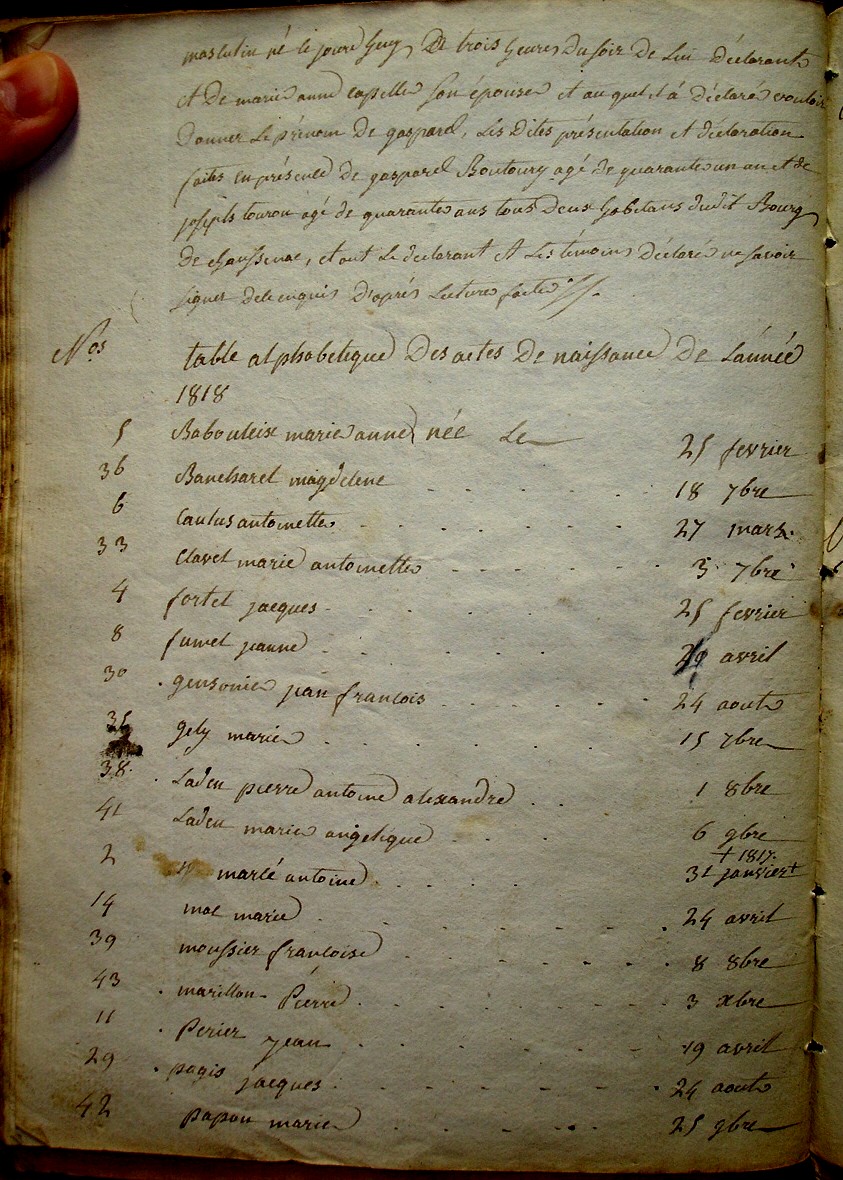 masculin né le jour d'huy a trois heures du soir de Lui déclarant
et De marie anne capelle son épouse et au quel il á Déclaré vouloir
Donner Le prénom De gaspard, Les Dites présentation et déclaration
faites en présence De gaspard Boutoury agé de quarante un an et de
joseph touron agé de quarante ans tous Deux habitans dudit Bourg
de chaussenac, et ont Le declarant et Les témoins Déclaré ne savoir
signer de ce enquis D'aprés Lecture faite
Nos table alphabetique Des actes De naissance De L'année
1818
5 Babouleix marie anne née Le 25 fevrier
36 Bancharel magdelene 18 7bre
6 Caulus antoinette 27 mars
33 Clavel marie antoinette 3 7bre
4 fortet jacques 25 fevrier
8 fumel jeanne avril
30 gensonie jean francois 24 aout
35 gely marie 15 7bre
38 Laden pierre antoine alexandre 1 8bre
41 Laden marie angelique 6 9bre
+ 1817.
2 marlé antoine 31 janvier +
14 mac marie 24 avril
39 moussier francoise 8 8bre
43 marillon Pierre 3 xbre
11 Perier jean 19 avril
29 pagis jacques 24 aout
42 papon marie 25 9bre